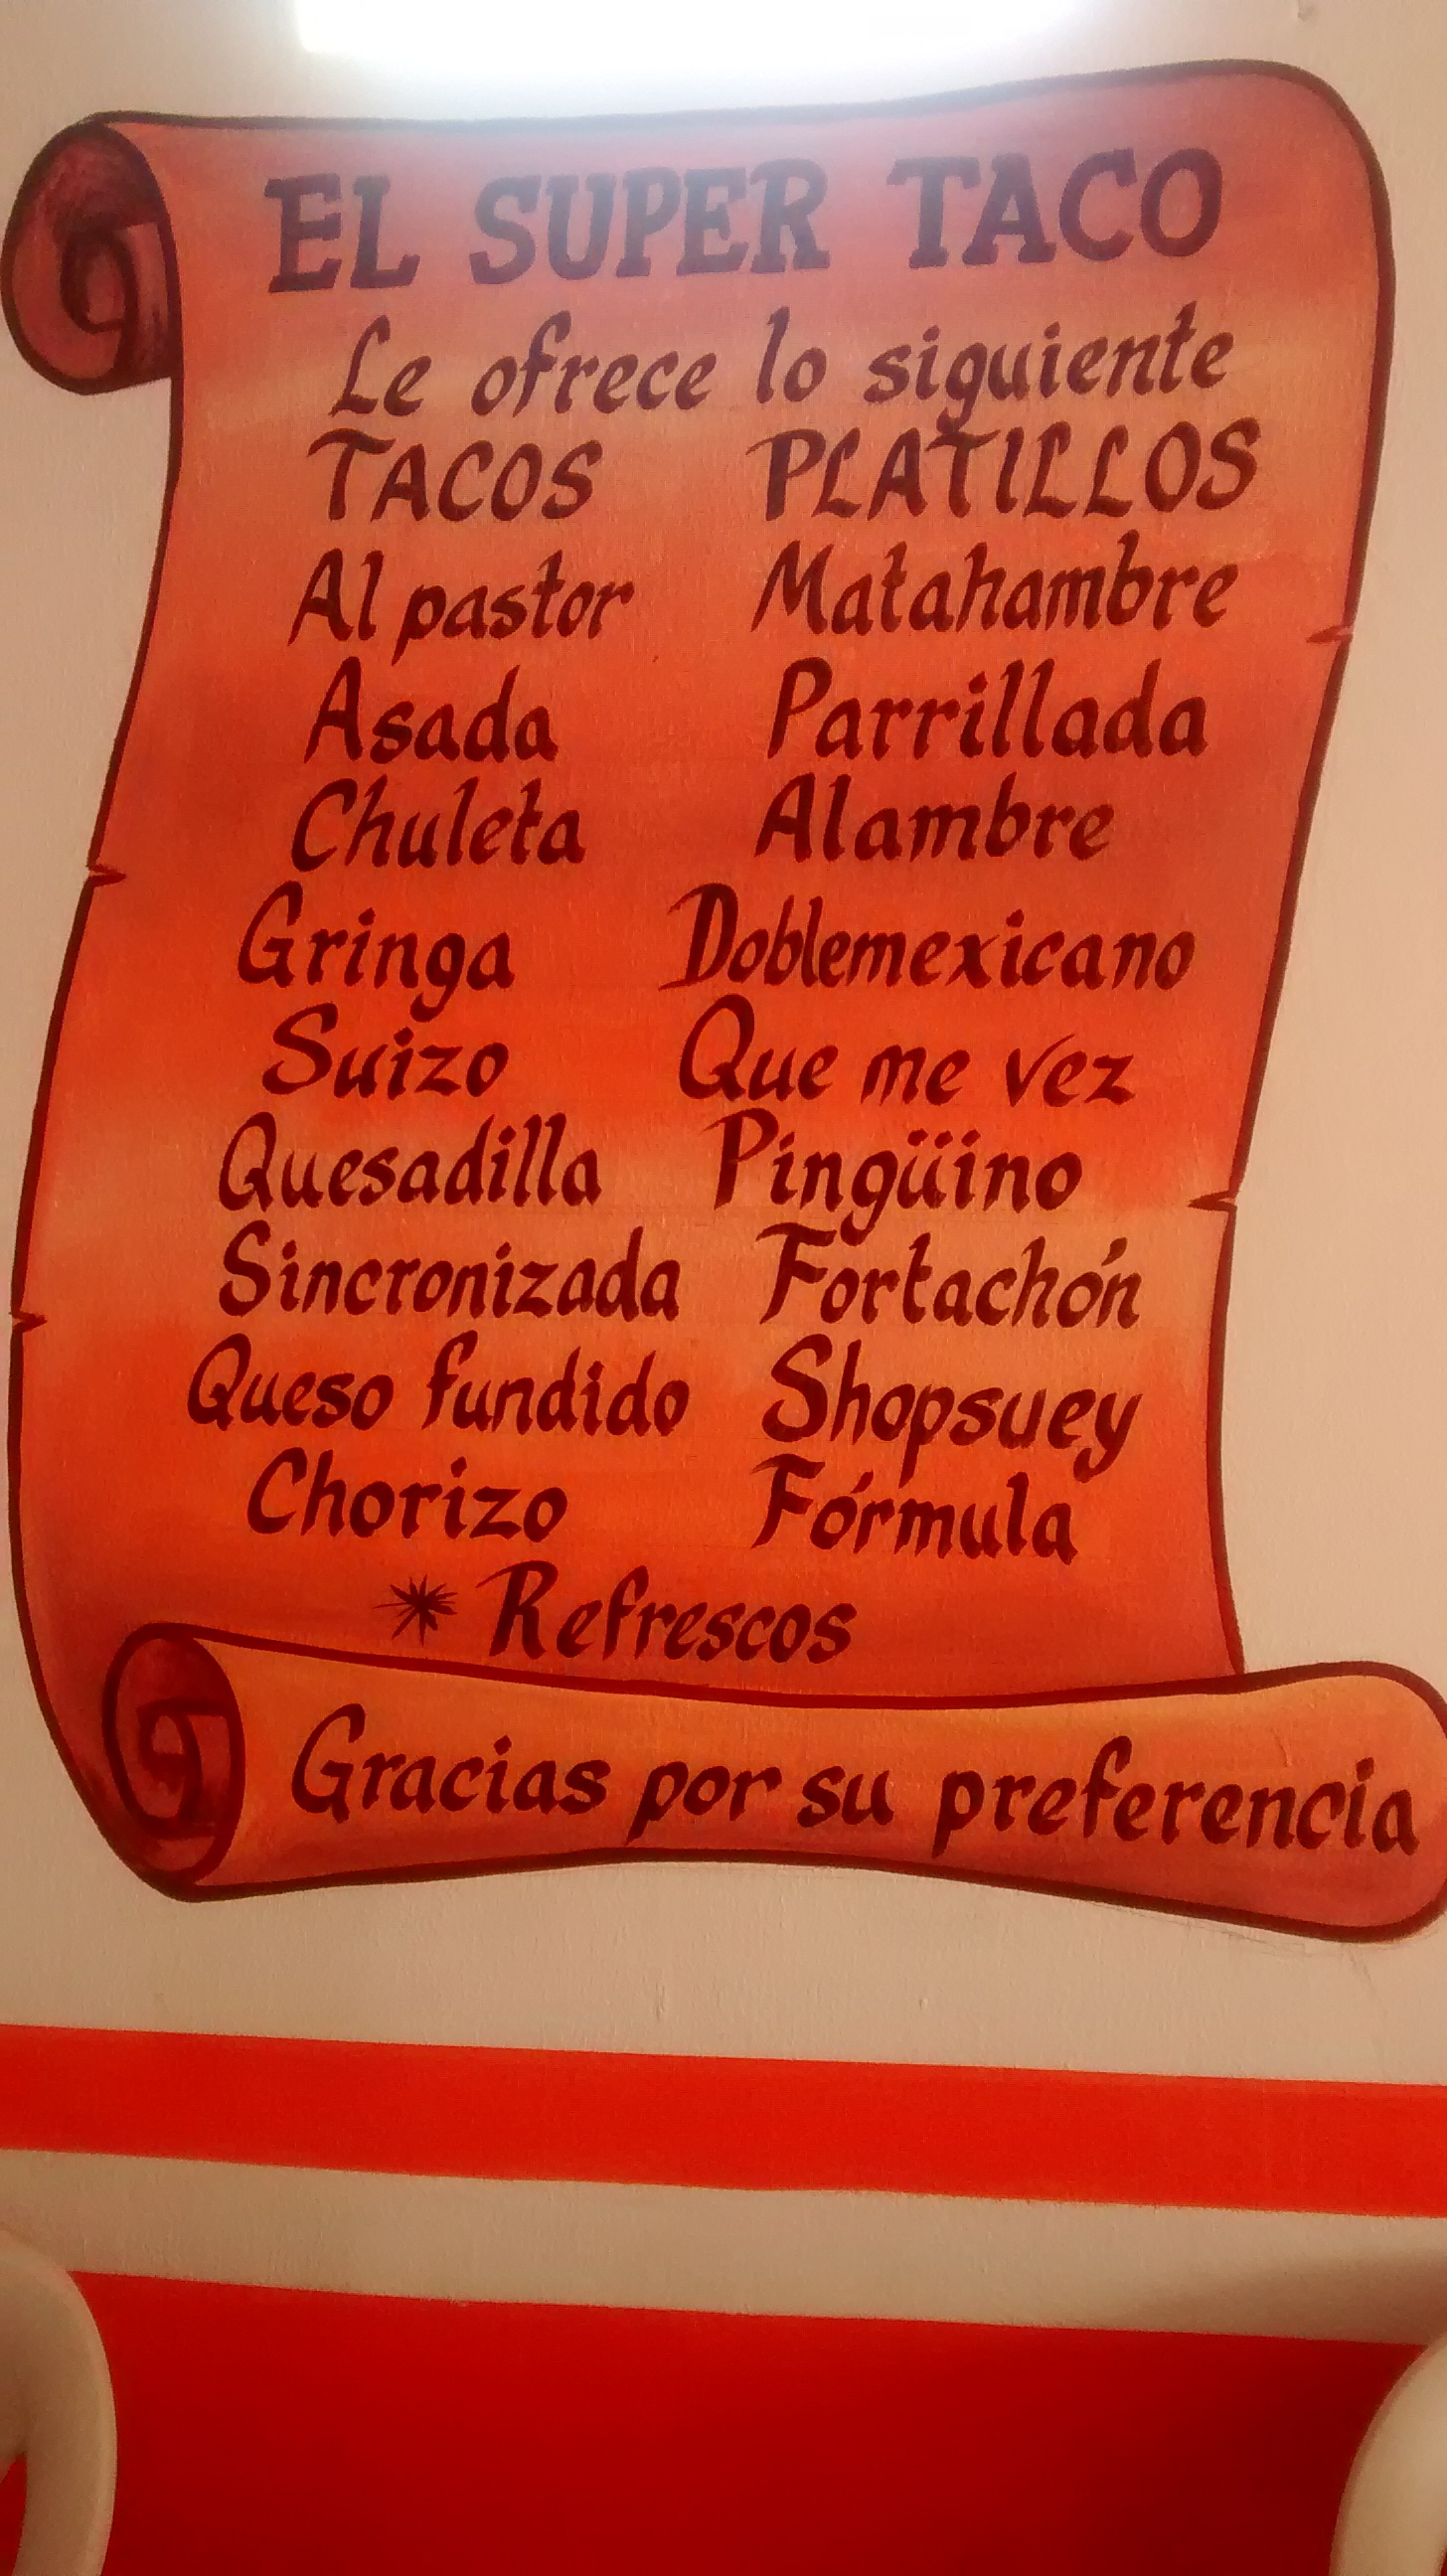 EL SUPER TACO
Le ofrece lo siguiente
TACOS PLATILLOS
Al pastor Matahambre
Asada Parrillada
Chuleta Alambre
Gringa Doblemexicano
Suizo Que me vez
Quesadilla Pingüino
Sincronizada Fortachón
Queso fundido Shopsuey
Chorizo Fórmula
* Refrescos
Gracias por su preferencia